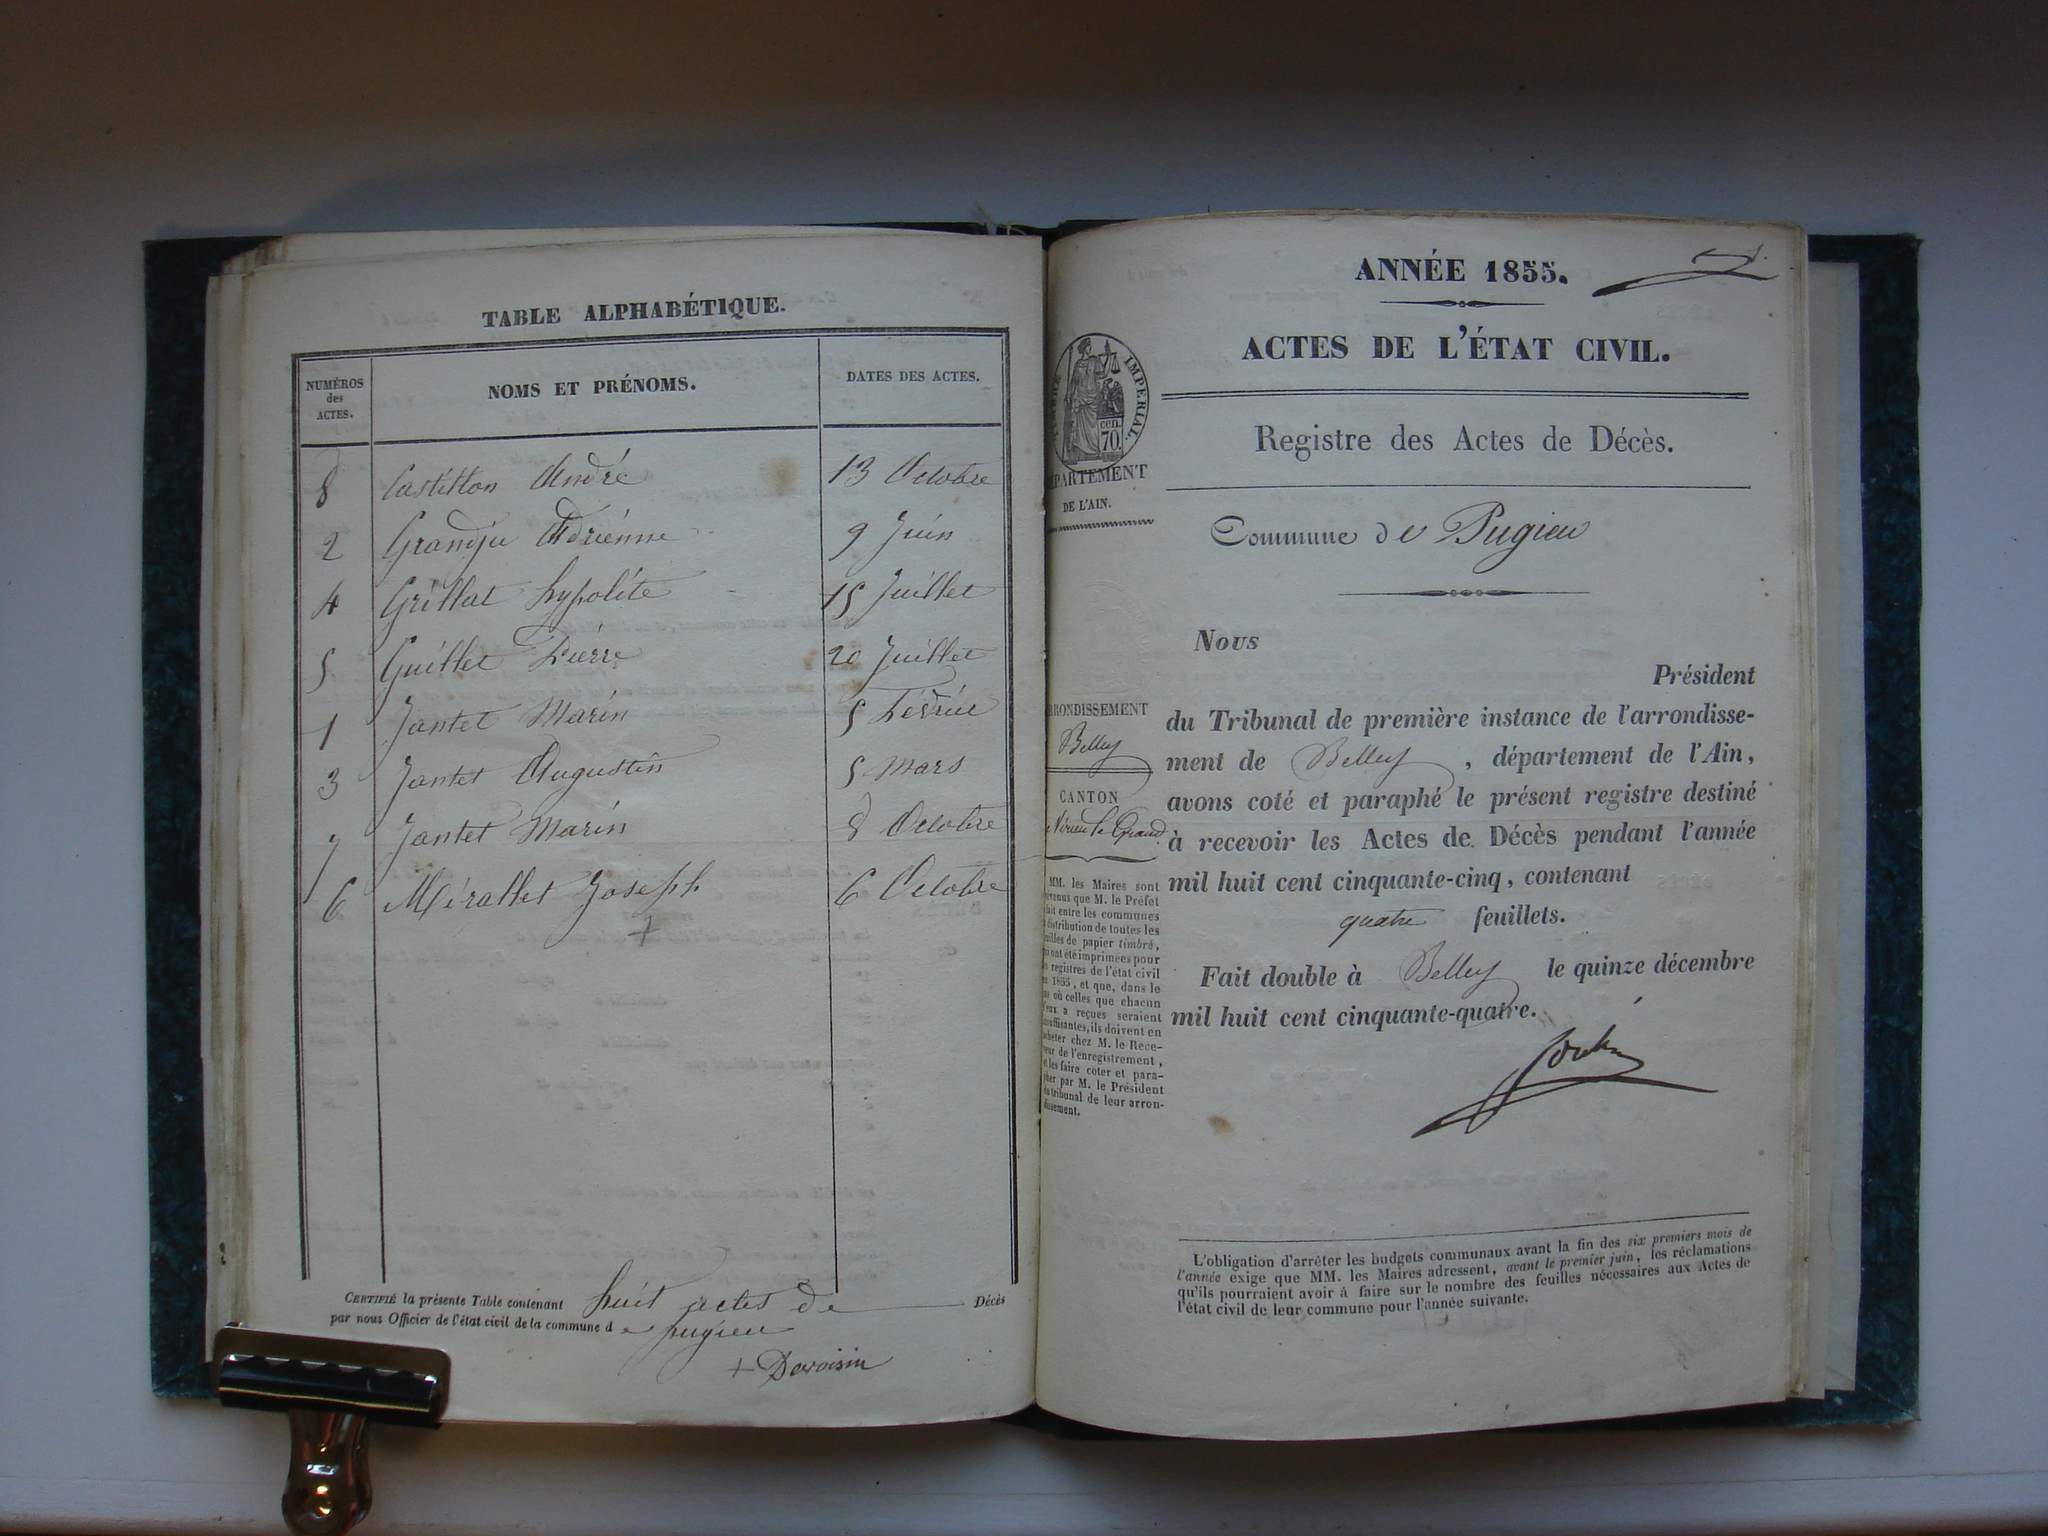 TABLE ALPHABÉTIQUE.
NUMÉROS des ACTES. NOMS ET PRÉNOMS. DATES DES ACTES.
8 Castillon André 13 Octobre
2 Grandju Adrienne 9 Juin
4 Grillat hypolite 15 Juillet
5 Guillet Pierre 20 Juillet
1 Jantet Marin 5 Février
3 Jantet Augustin 5 Mars
7 Jantet Marin 8 Octobre
6 Mérallet Joseph 6 Octobre
CERTIFIÉ la présente Table contenant huit actes de Décès
par nous Officier de l'état civil de la commune de pugieu
+ Devoisin
ANNÉE 1855.
ACTES DE L'ÉTAT CIVIL.
IMPERIAL.
cen.
70.
DE L'AIN.
Registre des Actes de Décès.
Commune de Pugieu
Nous
Président
du Tribunal de première instance de l'arrondisse-
ment de Belley, département de l'Ain,
avons coté et paraphé le présent registre destiné
à recevoir les Actes de Décès pendant l'année
mil huit cent cinquante-cinq, contenant
quatre feuillets.
Fait double à Belley le quinze décembre
mil huit cent cinquante-quatre.
Belley
CANTON
le Grand
MM. les Maires sont
que M. le Préfet
fait entre les communes
distribution de toutes les
de papier timbré,
ont été imprimées pour
registres de l'état civil
1855, et que, dans le
où celles que chacun
a reçues seraient
ils doivent en
chez M. le Rece-
de l'enregistrement,
les faire coter et para-
par M. le Président
tribunal de leur arron-
dissement.
L'obligation d'arrêter les budgets communaux avant la fin des six premiers mois de
l'année exige que MM. les Maires adressent, avant le premier juin, les réclamations
qu'ils pourraient avoir à faire sur le nombre des feuilles nécessaires aux Actes de
l'état civil de leur commune pour l'année suivante.